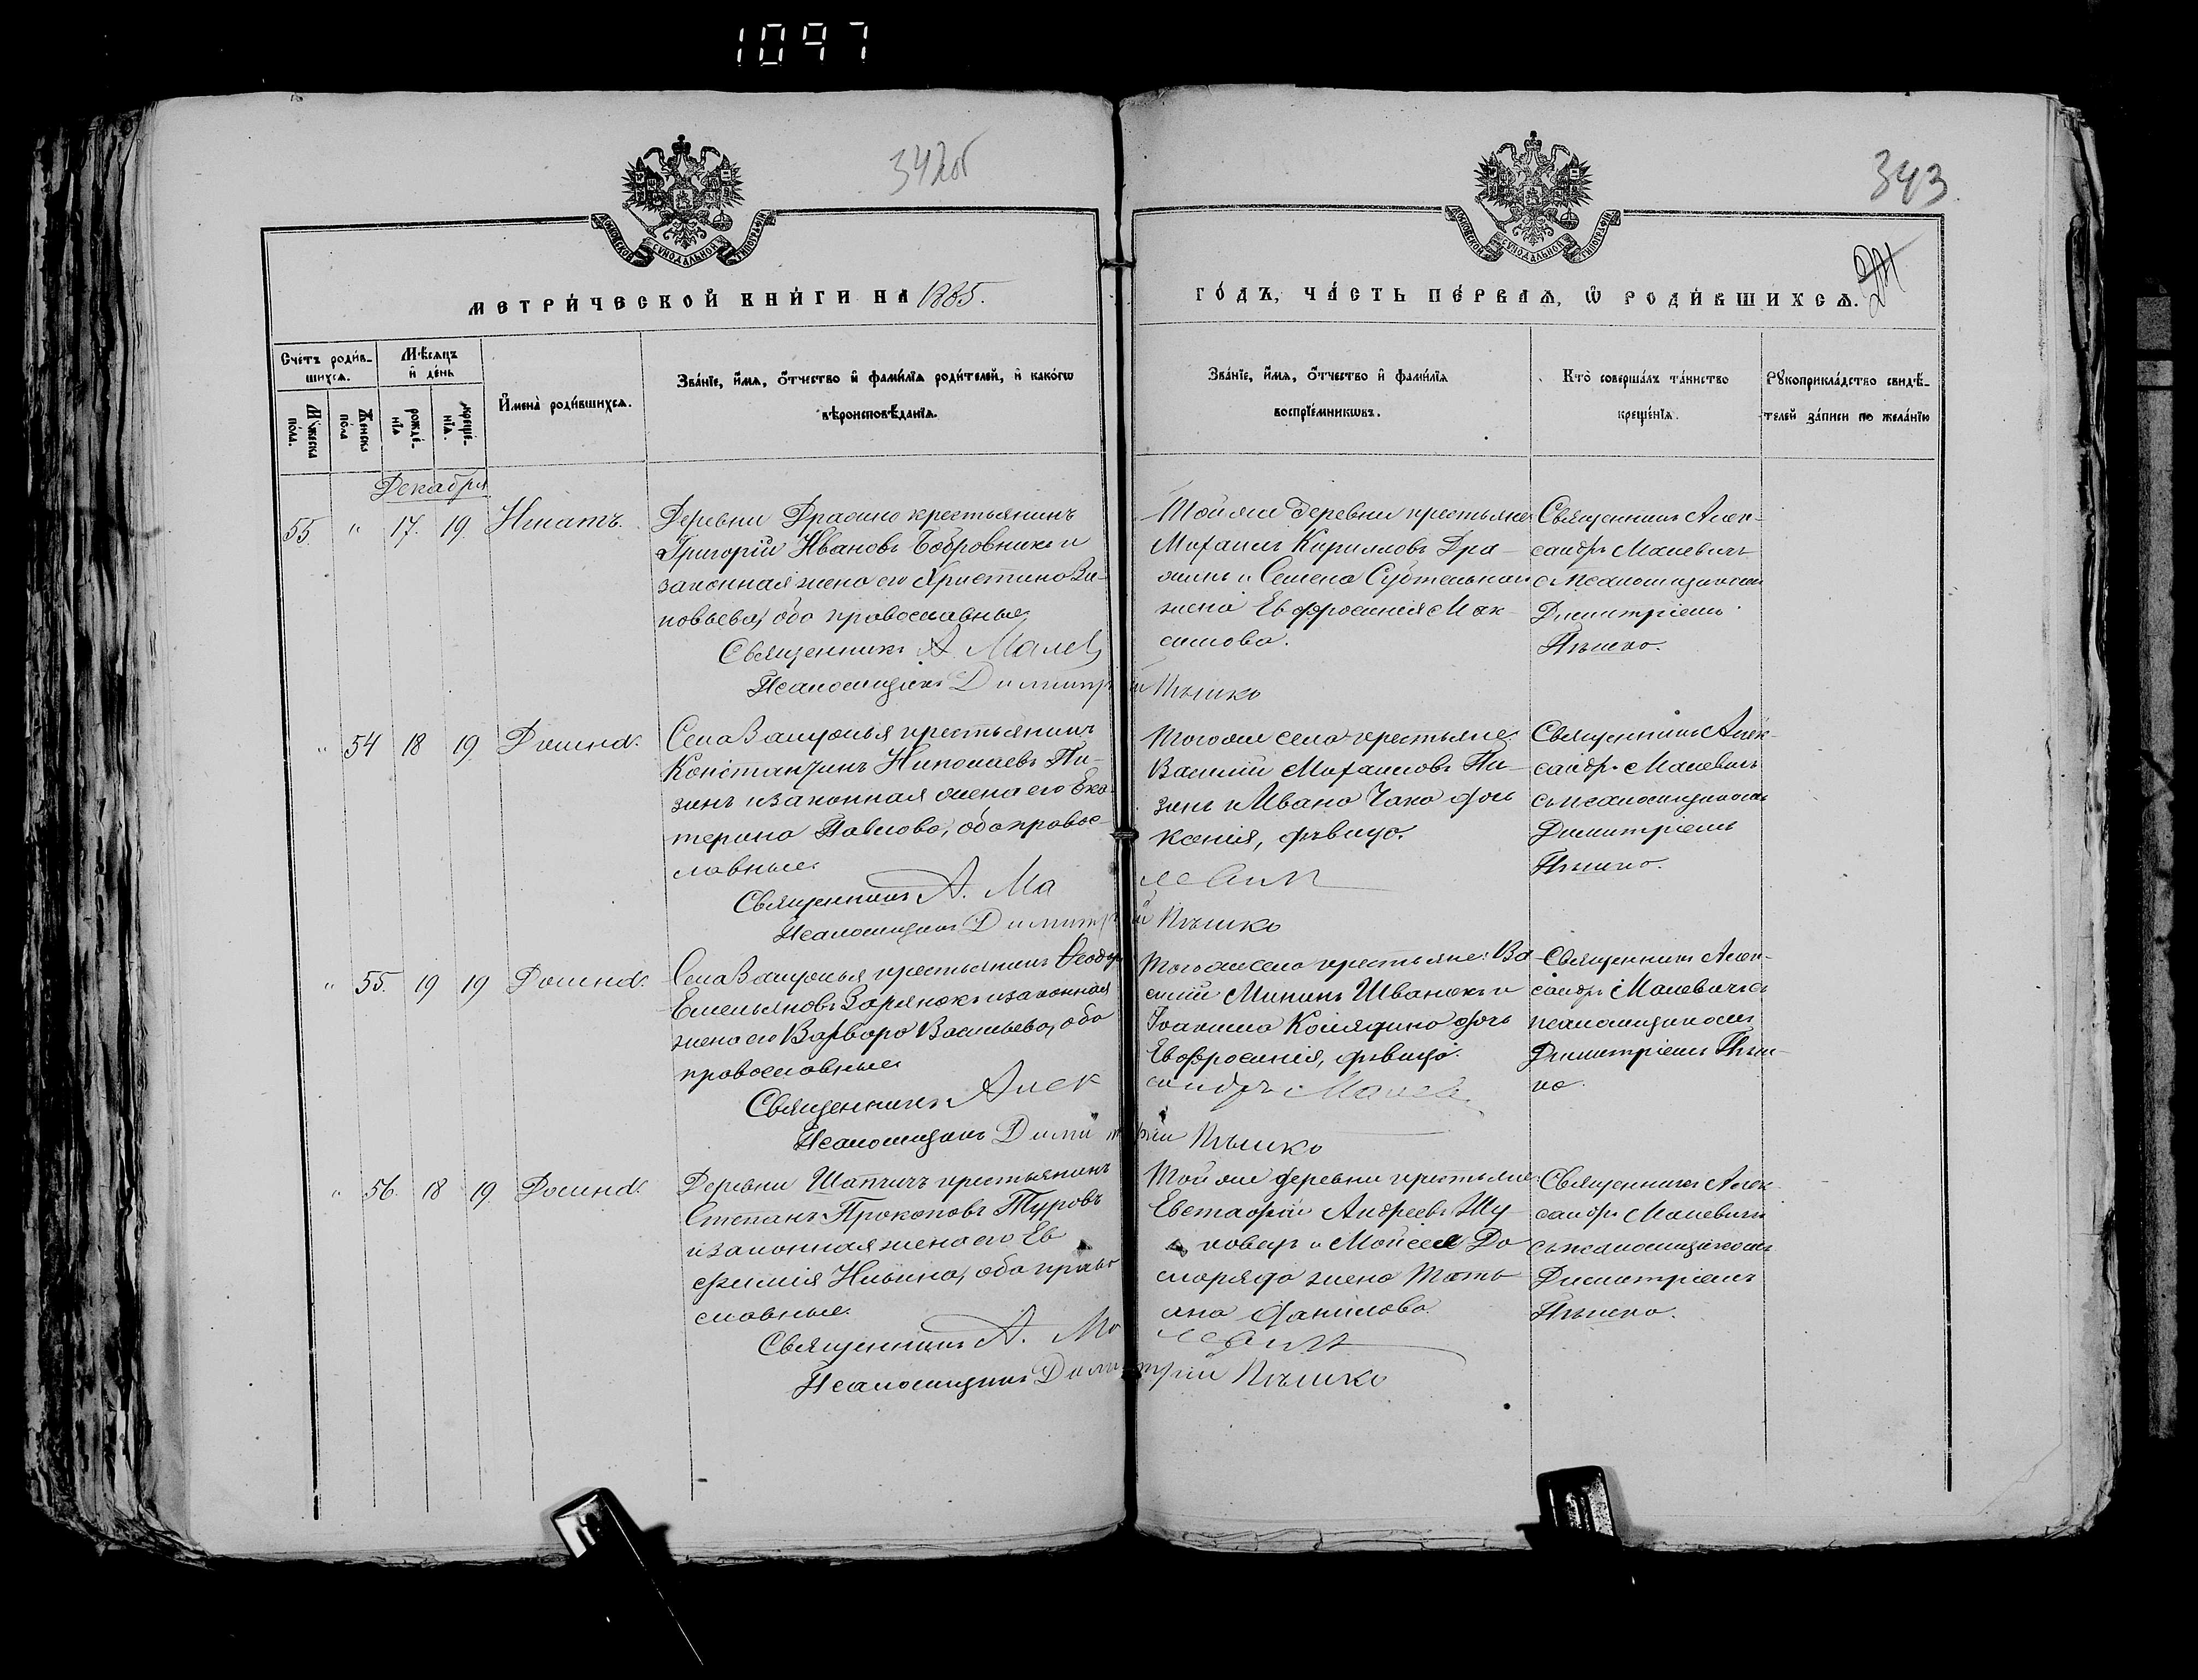 1097
342об
343
МОСКОВСКОЙ СѴНОДАЛЬНОЙ ТИПОГРАФІИ
МОСКОВСКОЙ СѴНОДАЛЬНОЙ ТИПОГРАФІИ
МЕТРИ́ЧЕСКОЙ КНИ́ГИ НА 1885.
ГО́ДЪ, ЧА́СТЬ ПЕ́РВАѦ, Ѡ РОДИ́ВШИХСѦ.
Сче́тъ роди́в-
шихсѧ.
Мѣ́сѧцъ
и҆ де́нь
Мꙋ́жеска
по́ла.
Же́нска
по́ла
рожде́-
нїѧ
креще́-
нїѧ.
И҆мена̀ роди́вшихсѧ.
Зва́нїе, и҆́мѧ, ѻ҆́тчество и҆ фамі́лїѧ роди́телей, и҆ како́гѡ
вѣроисповѣ́данїѧ.
Зва́нїе, и҆́мѧ, ѻ҆́тчество и҆ фамі́лїѧ
воспрїе́мникѡвъ.
Кто̀ соверша́лъ та́инство
креще́нїѧ.
Рꙋкоприкла́дство свидѣ́-
телей за́писи по жела́нїю
Декабря
55. " 17. 19. Игнатъ.
Деревни Драсино крестьянинъ
Григорій Ивановъ Бобровникъ и
законная жена его Христина Зи-
новьева, оба православные
Священникъ А. Малев
Псаломщикъ Димитрій Пѣшко
Той же деревни крестьяне
Михаилъ Кирилловъ Дра-
жена Евфросинія Мак-
симова.
Священникъ Алек-
сандръ Малевичъ
съ псаломщикомъ
Димитріемъ
Пѣшко.
" 54 18 19
крестьянинъ
Константинъ Николаевъ Пи-
зинъ и законная жена его Ека-
терина Павлова, оба право-
славные.
Священникъ А. Малевич
Псаломщикъ Димитрій Пѣшко
Того же села крестьяне
Василій Михаиловъ Пи-
зинъ и Ивана Чака дочь
Ксенія, дѣвица.
Священникъ Алек-
сандръ Малевичъ
съ псаломщикомъ
Димитріемъ
Пѣшко.
" 55. 19 19
крестьянинъ Ѳеодоръ
Емельяновъ Зарянокъ и законная
жена его Варвара Васильева, оба
православные
Священникъ Александръ Малев
Псаломщикъ Димитрій Пѣшко
Того же села крестьяне: Ва-
силій Мининъ Иванокъ и
дочь
Евфросинія, дѣвица.
Священникъ Алек-
сандръ Малевичъ съ
псаломщикомъ
Димитріемъ Пѣш-
ко.
" 56. 18 19
Деревни крестьянинъ
Степанъ Прокоповъ Туровъ
и законная жена его Ев
фимія Ильина, оба право
славные.
Священникъ А. Малевич
Псаломщикъ Димитрій Пѣшко
Той же деревни крестьяне:
Евстафій Андреевъ Жу-
ковецъ и Моисея До
жена Тать
яна Данилова.
Священникъ Алек-
сандръ Малевичъ
съ псаломщикомъ
Димитріемъ
Пѣшко.